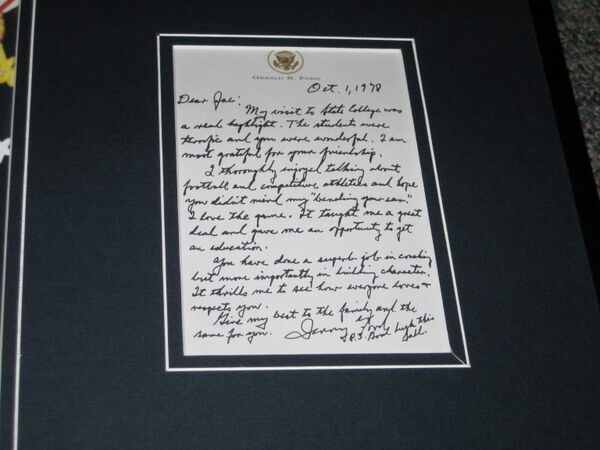 GERALD R. FORD
Oct. 1, 1978
Dear Joe:
My visit to State College was
a real highlight. The students were
terrific and you were wonderful. I am
most grateful for your friendship.
I thoroughly enjoyed talking about
football and competitive athletics and hope
you didn't mind my "bending your ear."
I love the game. It taught me a great
deal and gave me an opportunity to get
an education.
You have done a superb job in coaching
but more importantly in building character.
It thrills me to see how everyone loves +
respects you.
Give my best to the family and the
same for you. Jerry Ford
P.S. Best Luck this
fall.